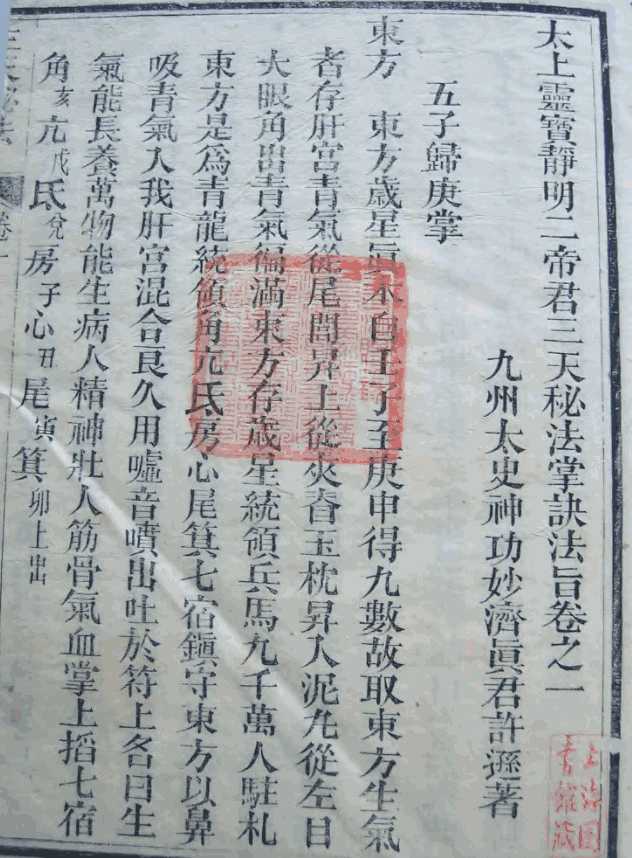 太上靈寶靜明二帝君三天秘法掌訣法旨卷之一
九州太史神功妙濟眞君許遜著
五子歸庚掌
東方　東方歲星眞木自壬子至庚申得九數故取東方生氣
者存肝宮青氣從尾閭昇上從夾脊玉枕昇入泥丸從左目
大眼角出青氣徧滿東方存歲星統領兵馬九千萬人駐札
東方是爲青龍統領角亢氐房心尾箕七宿鎮守東方以鼻
吸青氣入我肝宮混合良久用噓音噴出吐於符上各曰生
氣能長養萬物能生病人精神壯人筋骨氣血掌上掐七宿
角亥亢戌氐兌房子心丑尾寅箕卯上出
上海圖
書館藏